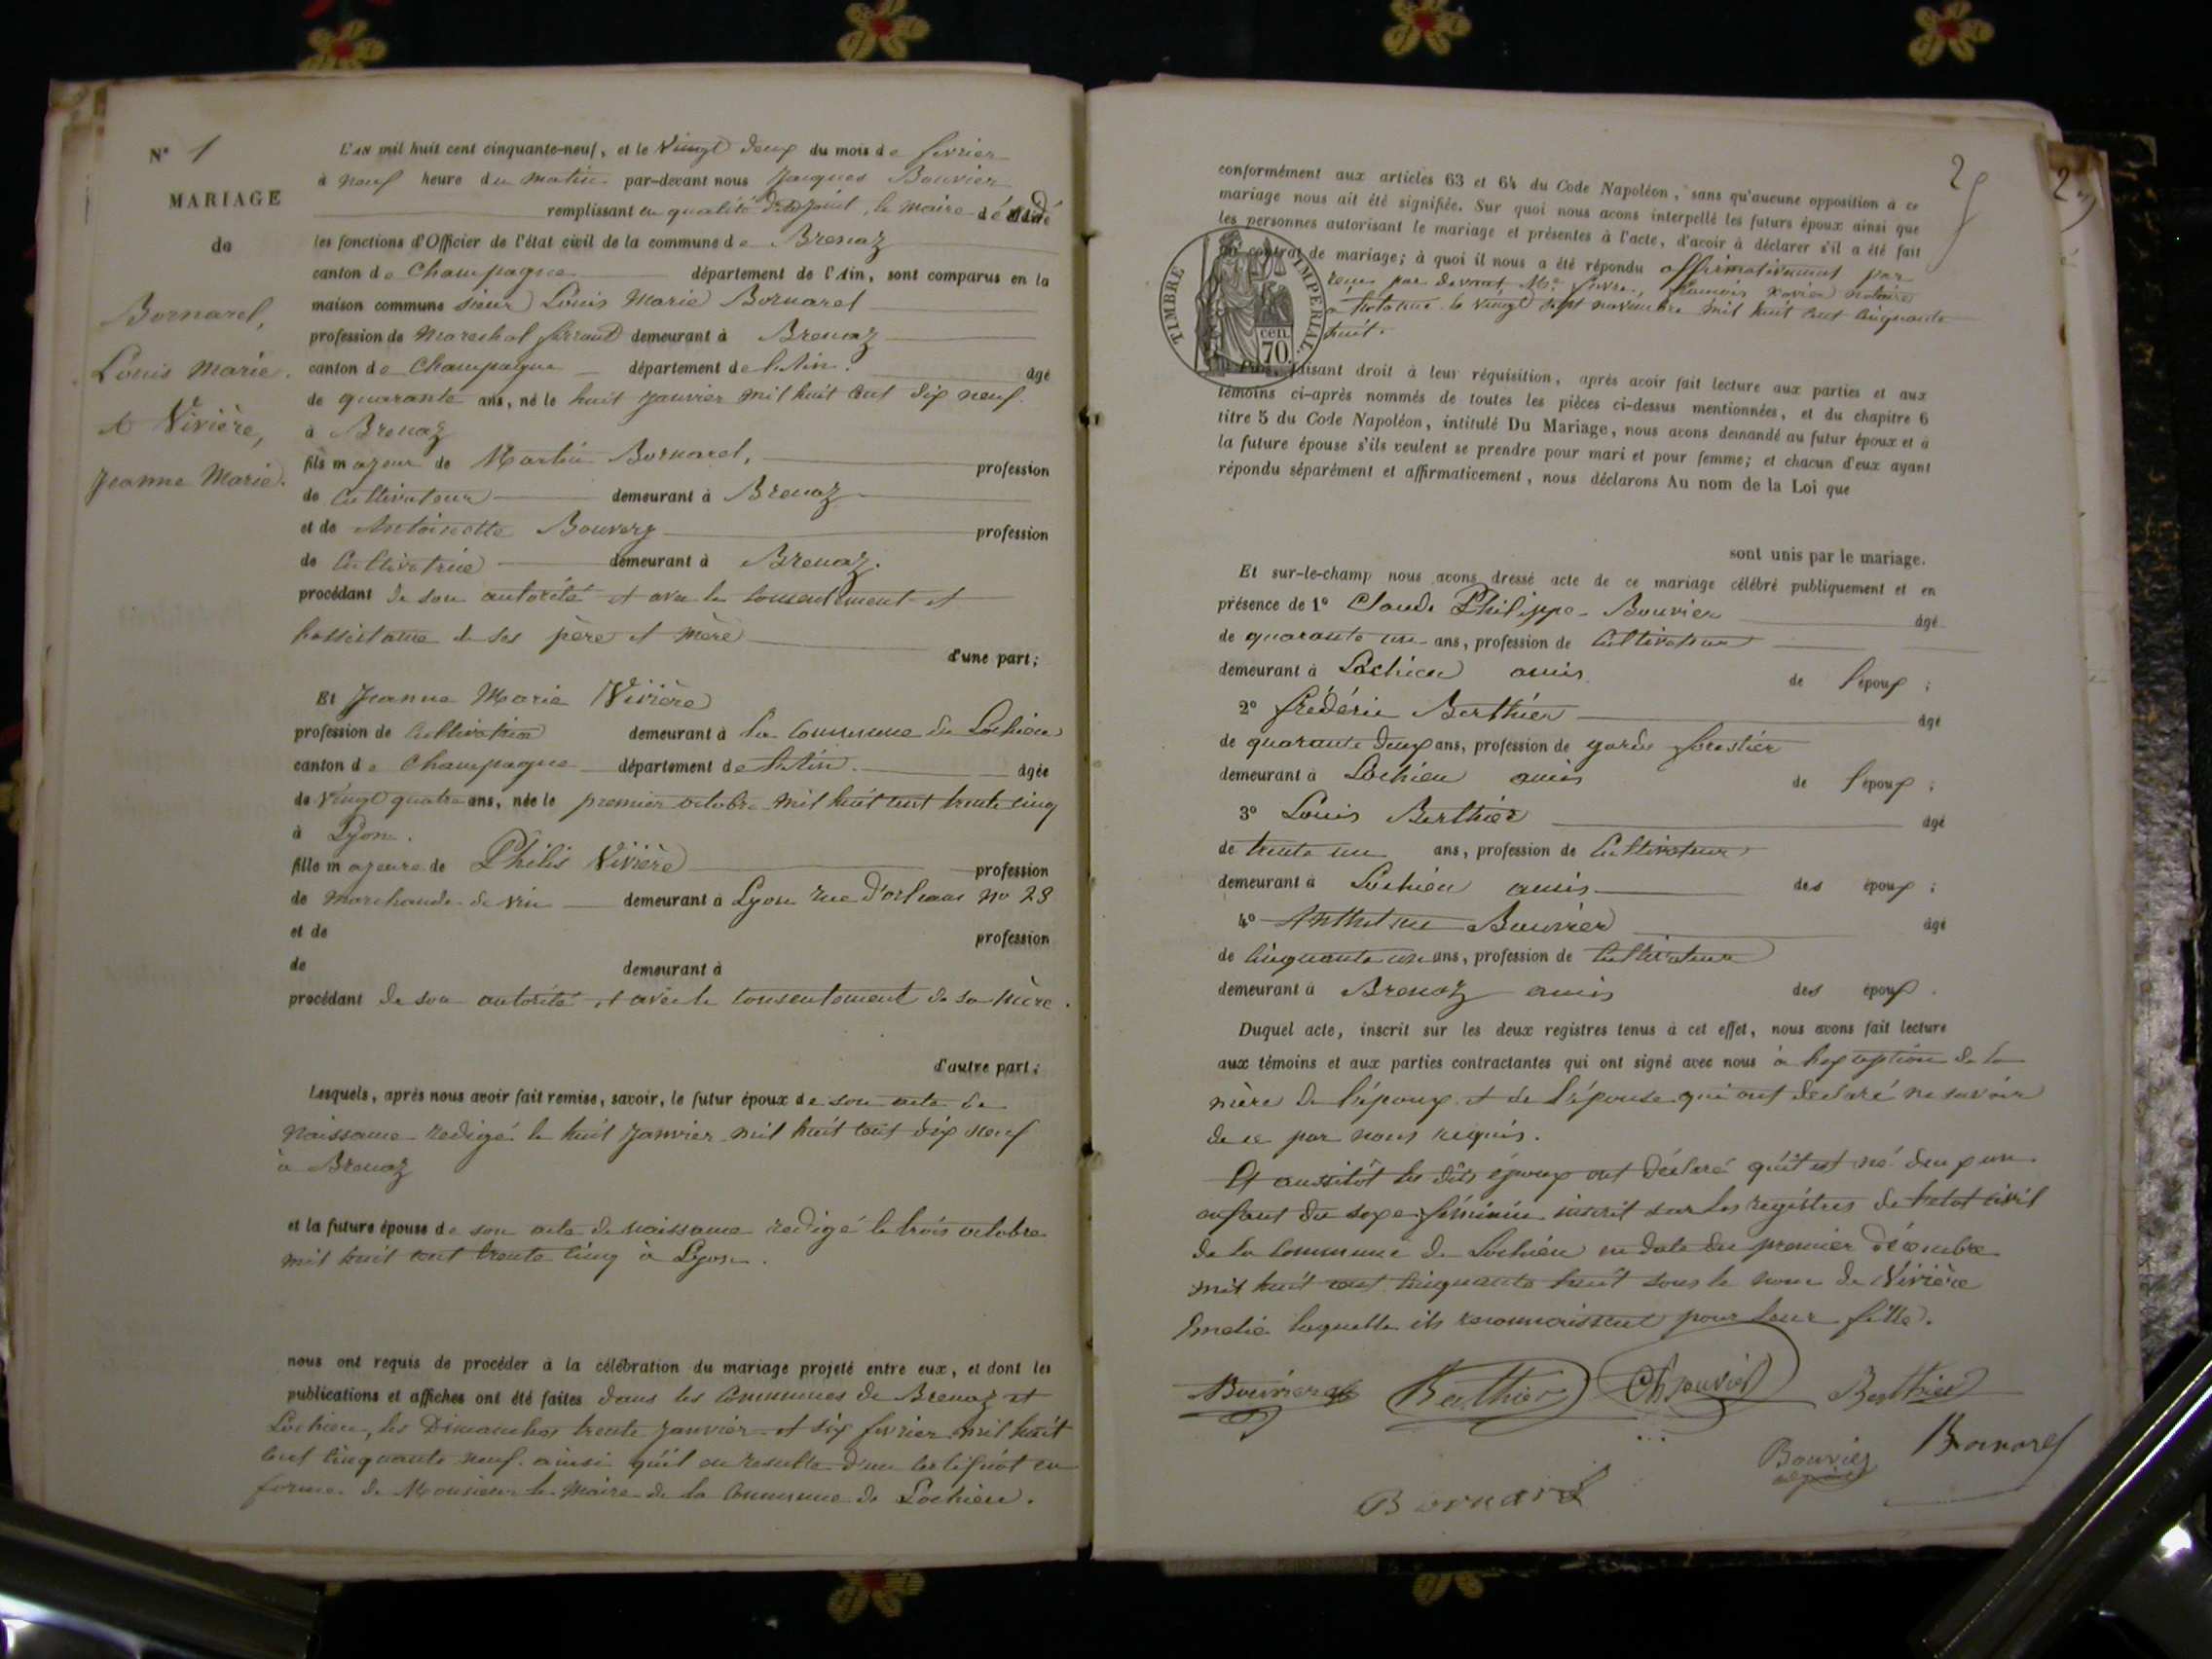 N° 1
MARIAGE
de
Bornarel,
Louis Marie.
et Vivière,
Jeanne Marie.
L'AN mil huit cent cinquante-neuf, et le Vingt deux du mois de fevrier
à neuf heure du matin par-devant nous Jacques Bouvier
remplissant en qualité d'adjoint, le maire décédé
les fonctions d'Officier de l'état civil de la commune de Brenaz
canton de Champagne département de l'Ain, sont comparus en la
maison commune sieur Louis Marie Bornarel
profession de Mareshal ferrant demeurant à Brenaz
canton de Champagne département de l'Ain. âgé
de quarante ans, né le huit Janvier mil huit cent dix neuf.
à Brenaz
fils majeur de Martin Bornarel, profession
de Cultivateur demeurant à Brenaz
et de Antoinette Bouvery profession
de Cultivatrice demeurant à Brenaz.
procédant de son autorité et avec le consentement et
l'assistance de ses père et mère
d'une part;
Et Jeanne Marie Vivière
profession de Cultivatrice demeurant à la Commune de Lochieu
canton de Champagne département de l'Ain. âgée
de Vingt quatre ans, née le premier octobre mil huit cent trente cinq
à Lyon.
fille majeure de Philis Vivière profession
de marchande de vin demeurant à Lyon rue d'orleans no 28
et de profession
de demeurant à
procédant de son autorité et avec le consentement de sa mère.
d'autre part;
Lesquels, après nous avoir fait remise, savoir, le futur époux de son acte de
naissance redigé le huit Janvier mil huit cent dix neuf
à Brenaz
et la future épouse de son acte de naissance redigé le trois octobre
mil huit cent trente cinq à Lyon.
nous ont requis de procéder à la célébration du mariage projeté entre eux, et dont les
publications et affiches ont été faites dans les Communes de Brenaz et
Lochieu, les Dimanches trente Janvier et six fevrier mil huit
cent cinquante neuf. ainsi qu'il en resulte d'un certificat en
forme de Monsieur le Maire de la Commune de Lochieu.
conformément aux articles 63 et 64 du Code Napoléon, sans qu'aucune opposition à ce
mariage nous ait été signifiée. Sur quoi nous avons interpellé les futurs époux ainsi que
les personnes autorisant le mariage et présentes à l'acte, d'avoir à déclarer s'il a été fait
un contrat de mariage; à quoi il nous a été répondu affirmativement par
reçu par devant Me François Xavier notaire
à le vingt sept novembre mil huit cent cinquante
huit.
TIMBRE IMPERIAL.
70 cen.
faisant droit à leur réquisition, après avoir fait lecture aux parties et aux
témoins ci-après nommés de toutes les pièces ci-dessus mentionnées, et du chapitre 6
titre 5 du Code Napoléon, intitulé Du Mariage, nous avons demandé au futur époux et à
la future épouse s'ils veulent se prendre pour mari et pour femme; et chacun d'eux ayant
répondu séparément et affirmativement, nous déclarons Au nom de la Loi que
sont unis par le mariage.
Et sur-le-champ nous avons dressé acte de ce mariage célébré publiquement et en
présence de 1° Claude Philippe Bouvier âgé
de quarante un ans, profession de Cultivateur
demeurant à Lochieu amis de l'époux;
2° frédéric Berthier âgé
de quarante deux ans, profession de garde forestier
demeurant à Lochieu amis de l'époux;
3° Louis Berthier âgé
de trente un ans, profession de Cultivateur
demeurant à Lochieu amis des époux;
4° Anthelme Bouvier âgé
de cinquante un ans, profession de Cultivateur
demeurant à Brenaz amis des époux.
Duquel acte, inscrit sur les deux registres tenus à cet effet, nous avons fait lecture
aux témoins et aux parties contractantes qui ont signé avec nous à l'exception de la
mère de l'époux et de l'épouse qui ont declaré ne savoir
de ce par nous requis.
Et aussitôt les dits époux ont déclaré qu'il est né d'eux un
enfant du sexe féminin inscrit sur les registres de l'etat civil
de la Commune de Lochieu en date du premier décembre
mil huit cent cinquante huit sous le nom de Vivière
Emelie laquelle ils reconnaissent pour leur fille.
Bouvier Berthier Ch Bouvier Berthier
Bouvier Bornarel
Bornarel